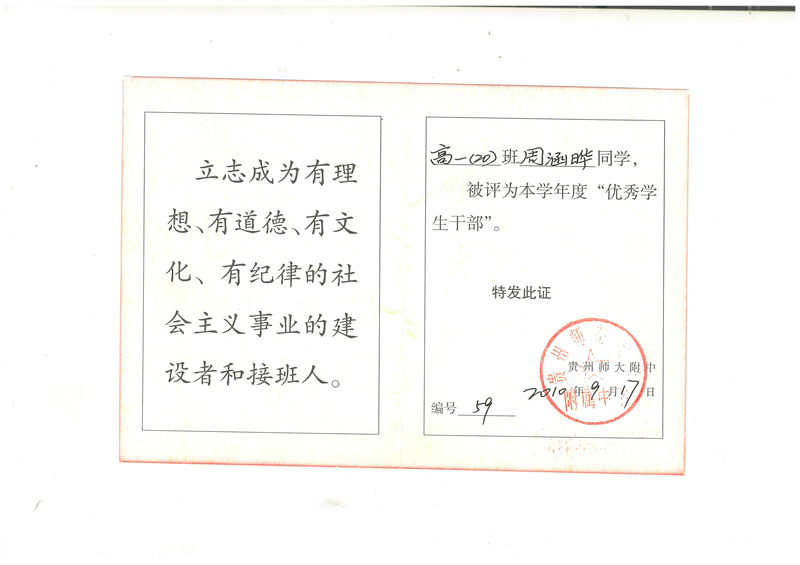 立志成为有理
想、有道德、有文
化、有纪律的社
会主义事业的建
设者和接班人。
高一(20)班周涵晔同学，
被评为本学年度“优秀学
生干部”。
特发此证
贵州师大附中
2010年9月17日
编号 59
贵州师
附属中